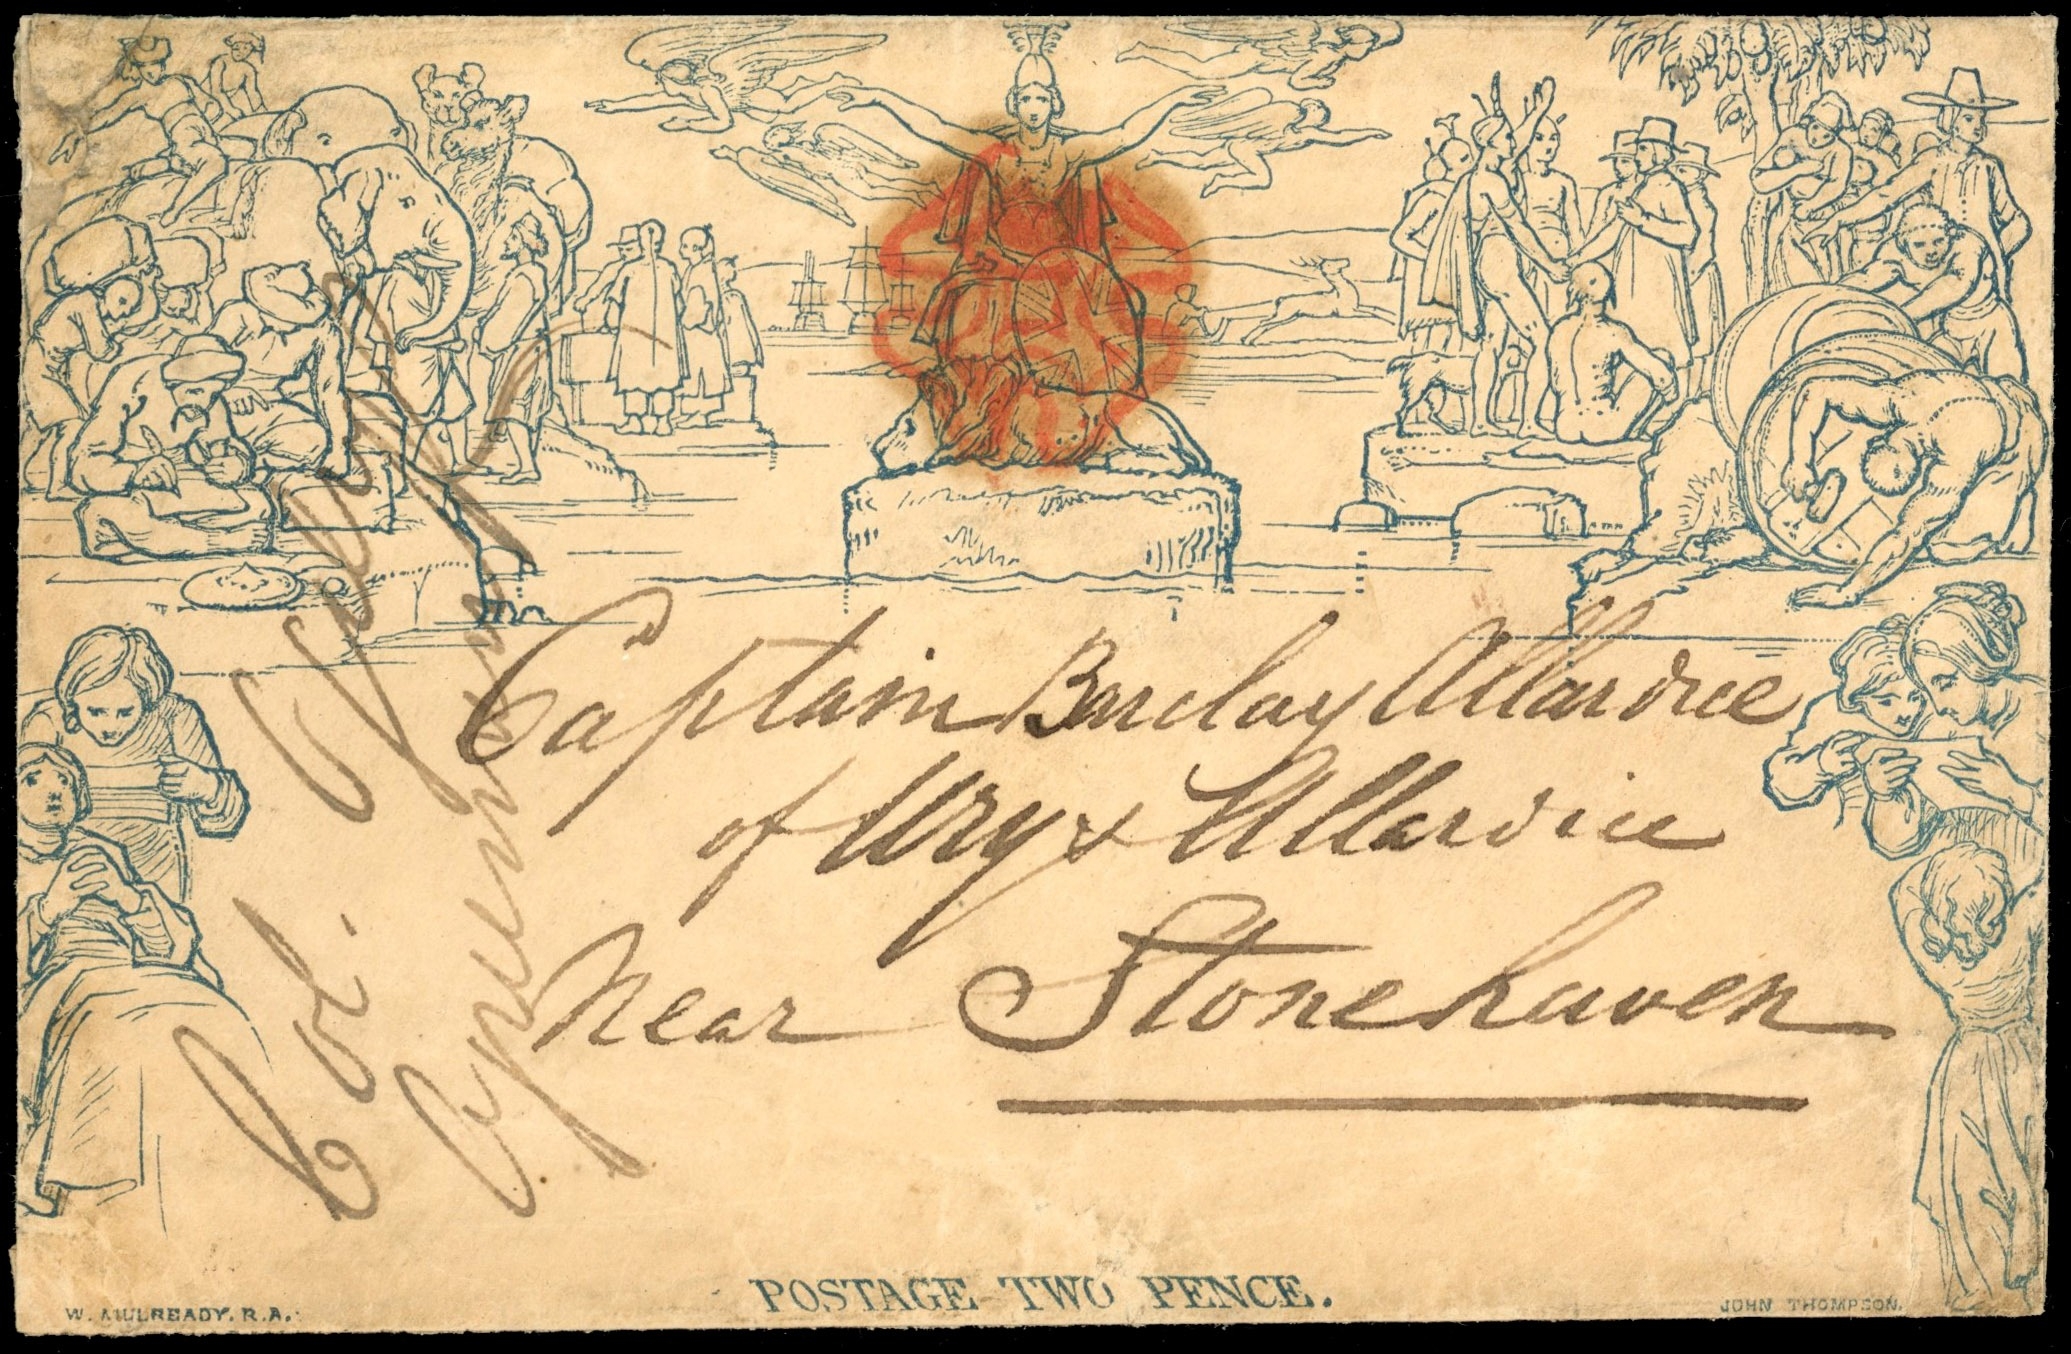 Captain Barclay Allardice
of Ury & Allardice
Near Stonehaven
Col.
POSTAGE TWO PENCE.
W. MULREADY. R.A.
JOHN THOMPSON.